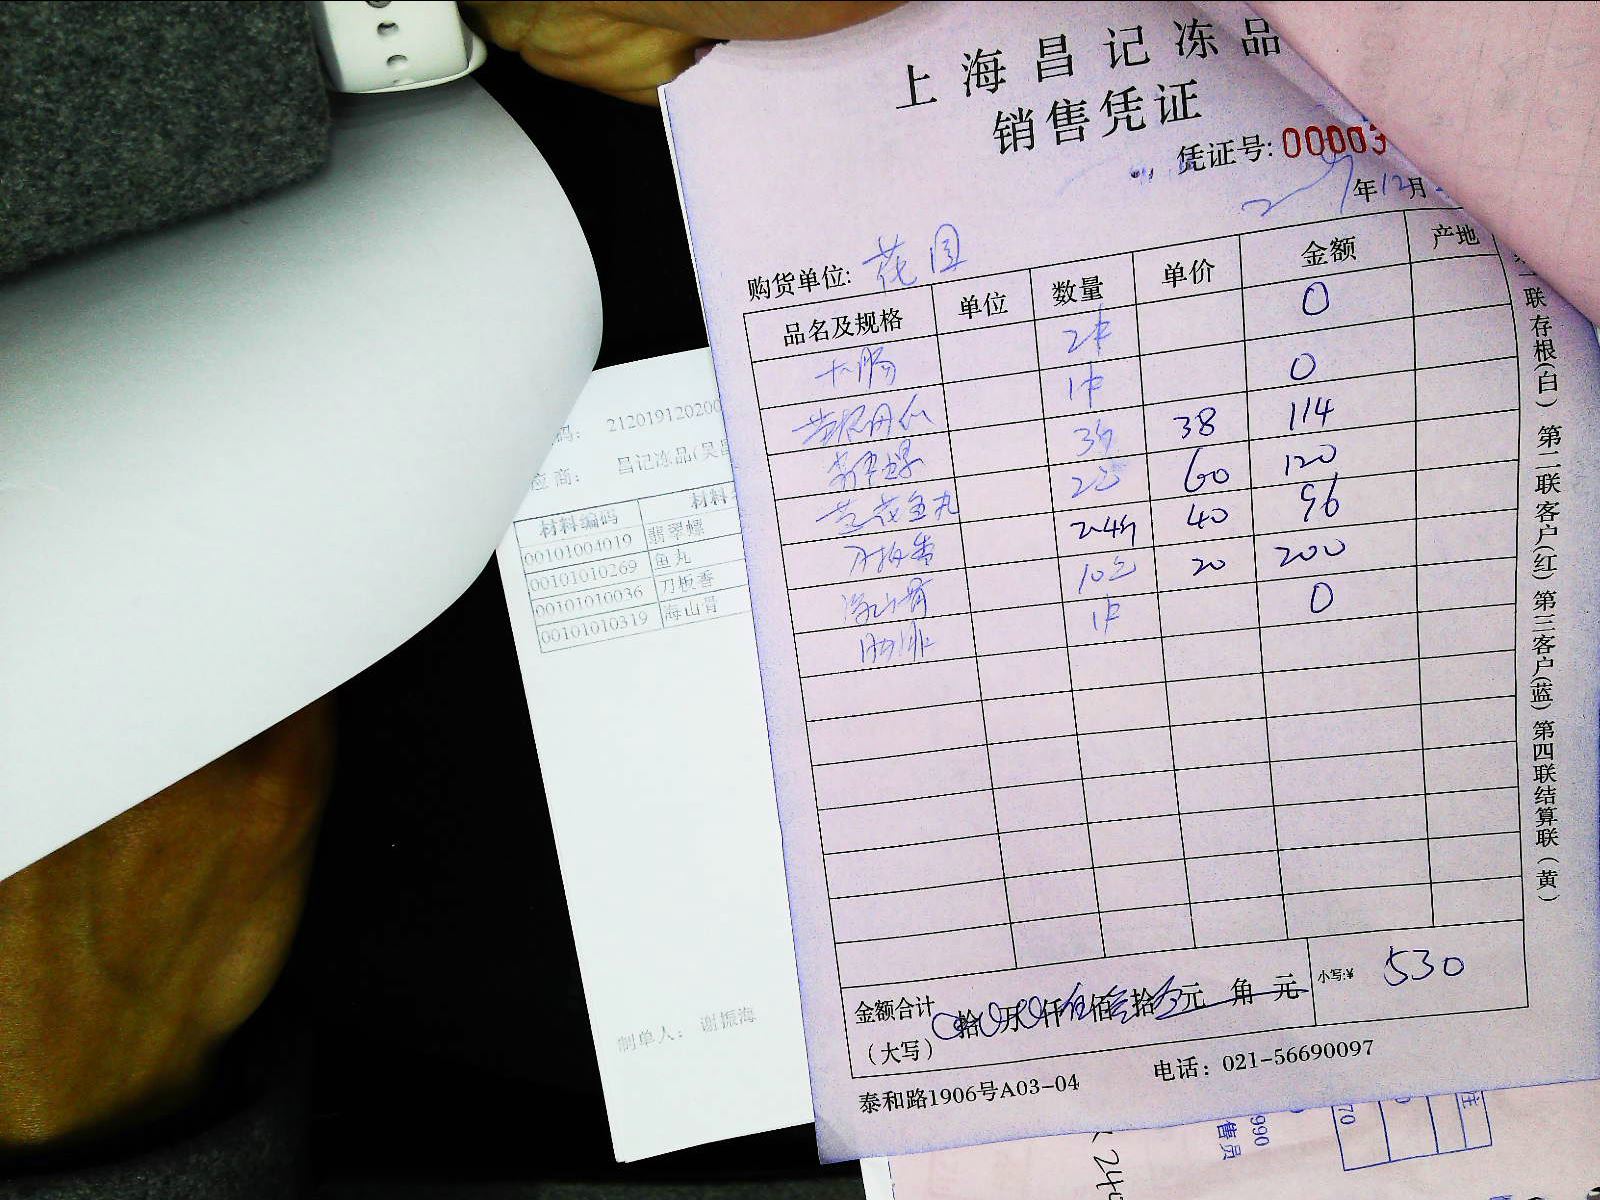 上海昌记冻品
销售凭证
凭证号: 00003
年12月
购货单位: 花园
品名及规格 单位 数量 单价 金额 产地
大肠 2件 0
1件 0
翡翠螺 3斤 38 114
鱼丸 2包 60 120
刀板香 2.4斤 40 96
海山骨 10包 20 200
1件 0
金额合计 拾万仟伍佰叁拾零元 角 元 小写:¥ 530
(大写)
泰和路1906号A03-04 电话: 021-56690097
联 存根(白) 第二联客户(红) 第三客户(蓝) 第四联结算联(黄)
码: 212019120200
应商: 昌记冻品(吴昌
材料编码 材料
00101004019 翡翠螺
00101010269 鱼丸
00101010036 刀板香
00101010319 海山骨
制单人: 谢振海
990
售员
70
注